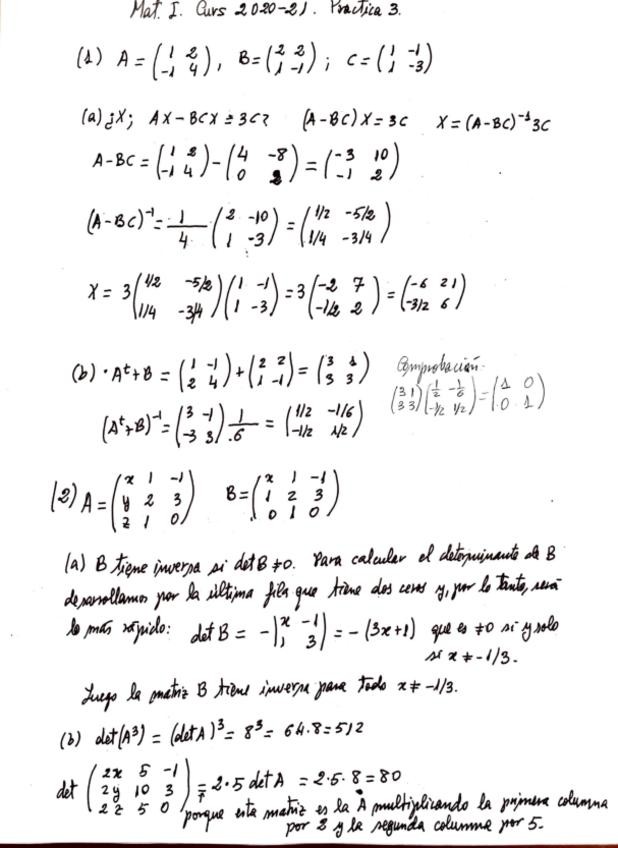 Mat. I. Curs 2020-21. Practica 3.
(1) A = (1 2; -1 4), B = (2 2; 1 -1); C = (1 -1; 1 -3)
(a) ¿X; AX - BCX = 3C? (A-BC)X = 3C X = (A-BC)^-1 3C
A-BC = (1 2; -1 4) - (4 -8; 0 2) = (-3 10; -1 2)
(A-BC)^-1 = 1/4 (2 -10; 1 -3) = (1/2 -5/2; 1/4 -3/4)
X = 3 (1/2 -5/2; 1/4 -3/4) (1 -1; 1 -3) = 3 (-2 7; -1/2 2) = (-6 21; -3/2 6)
(b) · A^t + B = (1 -1; 2 4) + (2 2; 1 -1) = (3 1; 3 3)
Comprobación:
(3 1; 3 3) (1/2 -1/6; -1/2 1/2) = (1 0; 0 1)
(A^t + B)^-1 = (3 -1; -3 3) 1/6 = (1/2 -1/6; -1/2 1/2)
(2) A = (x 1 -1; y 2 3; z 1 0) B = (x 1 -1; 1 2 3; 0 1 0)
(a) B tiene inversa si det B ≠ 0. Para calcular el determinante de B
desarrollamos por la última fila que tiene dos ceros y, por lo tanto, será
lo más rápido: det B = - |x -1; 1 3| = - (3x+1) que es ≠ 0 si y solo
si x ≠ -1/3.
Luego la matriz B tiene inversa para todo x ≠ -1/3.
(b) det(A^3) = (det A)^3 = 8^3 = 64·8 = 512
det (2x 5 -1; 2y 10 3; 2z 5 0) = 2·5 det A = 2·5·8 = 80
porque esta matriz es la A multiplicando la primera columna
por 2 y la segunda columna por 5.